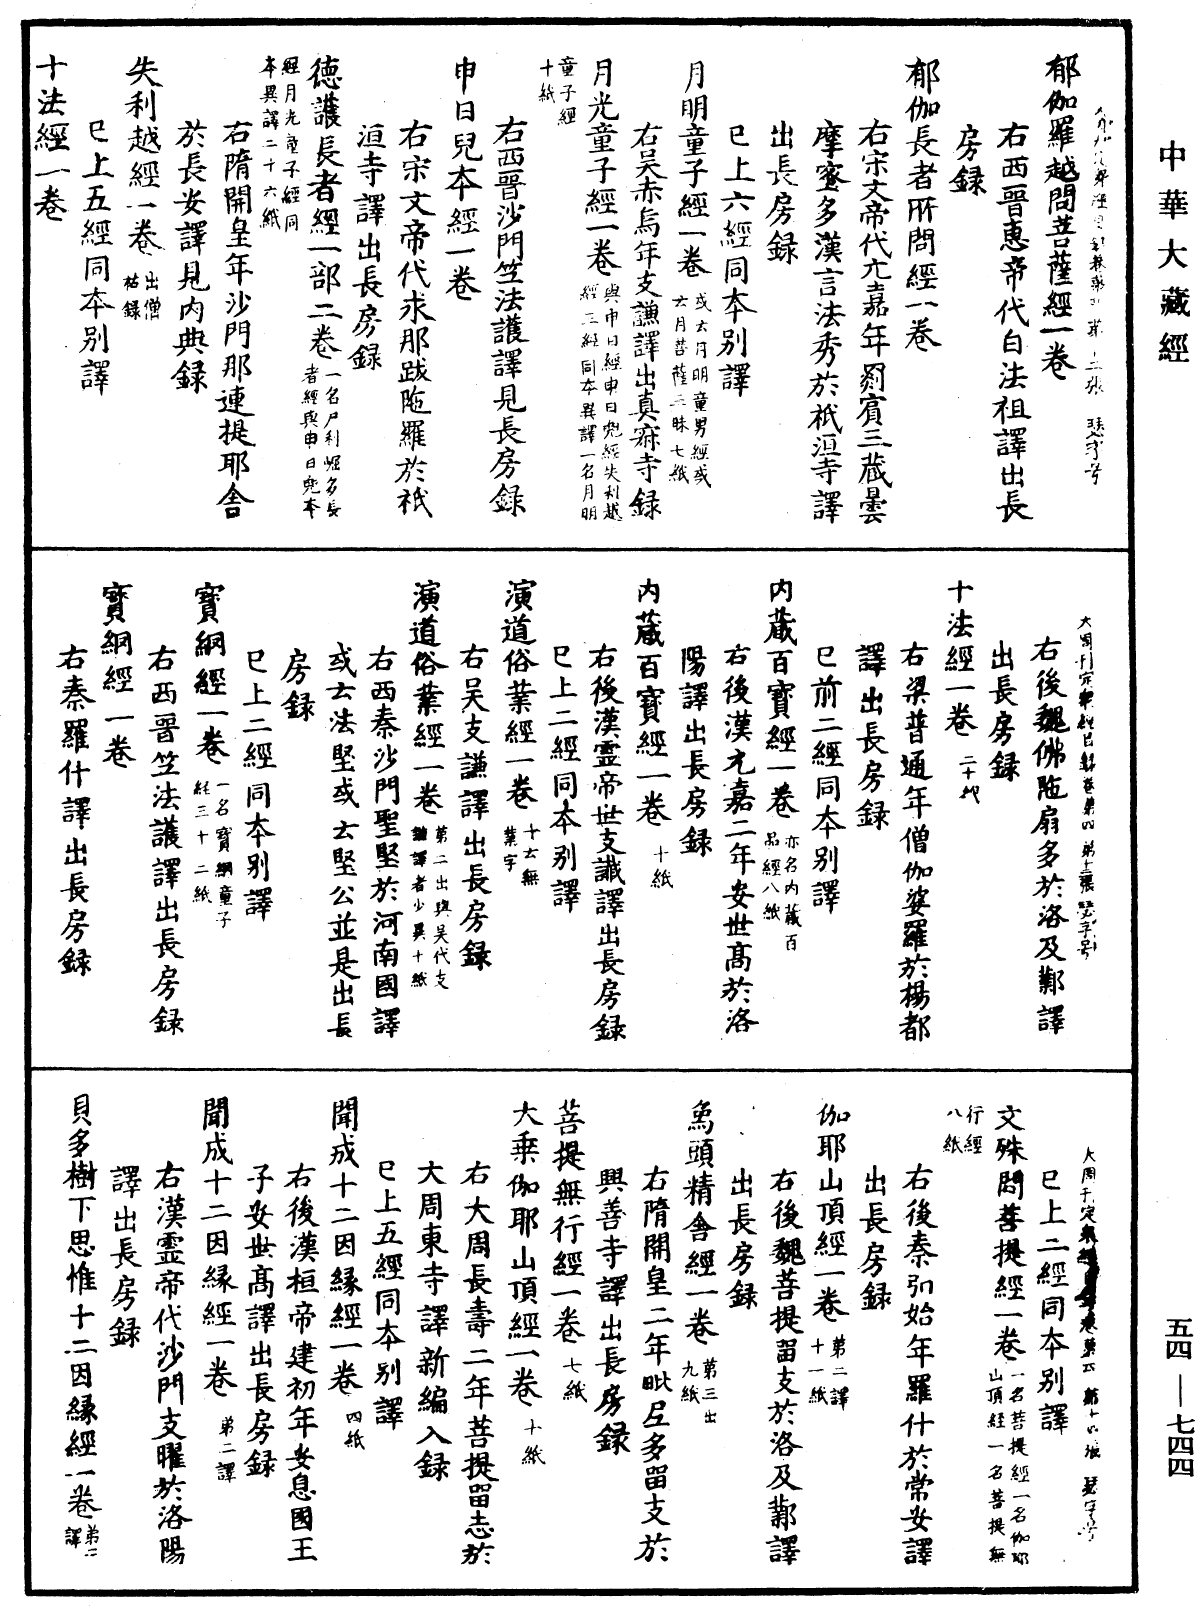 中華大藏經
郁伽羅越問菩薩經一卷
右西晉惠帝代白法祖譯出長
房録
郁伽長者所問經一卷
右宋文帝代元嘉年罽賓三藏曇
摩蜜多漢言法秀於祇洹寺譯
出長房録
已上六經同本別譯
月明童子經一卷 或云月明童男經或
云月菩薩三昧七紙
右吴赤烏年支謙譯出真寂寺録
月光童子經一卷 與申日經申日兜經失利越
經三經同本異譯一名月明
童子經
十紙
右西晉沙門竺法護譯見長房録
申日兒本經一卷
右宋文帝代求那跋陁羅於祇
洹寺譯出長房録
德護長者經一部二卷 一名尸利崛多長
者經與申日兜本
經月光童子經同
本異譯二十六紙
右隋開皇年沙門那連提耶舍
於長安譯見內典録
失利越經一卷 出僧
祐録
已上五經同本別譯
十法經一卷
右後魏佛陁扇多於洛及鄴譯
出長房録
十法經一卷 二十紙
右梁普通年僧伽婆羅於楊都
譯出長房録
已前二經同本別譯
內藏百寶經一卷 亦名內藏百
品經八紙
右後漢元嘉二年安世髙於洛
陽譯出長房録
內藏百寶經一卷 十紙
右後漢靈帝世支讖譯出長房録
已上二經同本別譯
演道俗葉經一卷 十云無
葉字
右吴支謙譯出長房録
演道俗葉經一卷 第二出與吴代支
謙譯者少異十紙
右西秦沙門聖堅於河南國譯
或云法堅或云堅公並是出長
房録
已上二經同本別譯
寳網經一卷 一名寳網童子
經三十二紙
右西晉竺法護譯出長房録
寳網經一卷
右秦羅什譯出長房録
已上二經同本別譯
文殊問菩提經一卷 一名菩提經一名伽耶
山頂經一名菩提無
行經
八紙
右後秦弘始年羅什於常安譯
出長房録
伽耶山頂經一卷 第二譯
十一紙
右後魏菩提留支於洛及鄴譯
出長房録
象頭精舍經一卷 第三出
九紙
右隋開皇二年毗尼多留支於
興善寺譯出長房録
菩提無行經一卷 七紙
大乗伽耶山頂經一卷 十紙
右大周長壽二年菩提留志於
大周東寺譯新編入録
已上五經同本別譯
聞成十二因緣經一卷 四紙
右後漢桓帝建初年安息國王
子安世髙譯出長房録
聞成十二因緣經一卷 第二譯
右漢靈帝代沙門支曜於洛陽
譯出長房録
貝多樹下思惟十二因緣經一卷 第二
譯
五四—七四四